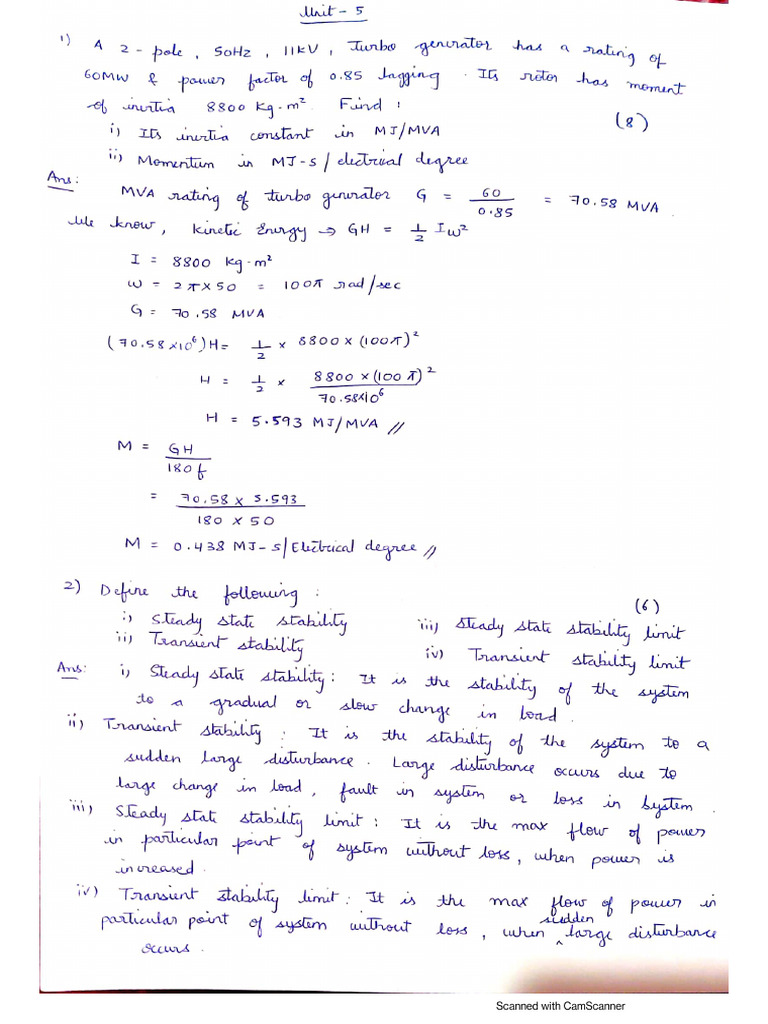 Unit - 5
1) A 2-pole, 50Hz, 11kV, turbo generator has a rating of
60MW & power factor of 0.85 lagging. Its rotor has moment
of inertia 8800 Kg-m². Find :
(8)
i) Its inertia constant in MJ/MVA
ii) Momentum in MJ-S / electrical degree
Ans:
MVA rating of turbo generator G = 60/0.85 = 70.58 MVA
We know, Kinetic Energy → GH = 1/2 Iω²
I = 8800 Kg-m²
ω = 2π×50 = 100π rad/sec
G = 70.58 MVA
(70.58×10⁶)H = 1/2 × 8800×(100π)²
H = 1/2 × 8800×(100π)²/70.58×10⁶
H = 5.593 MJ/MVA //
M = GH/180f
= 70.58 × 5.593/180 × 50
M = 0.438 MJ-S/Electrical degree //
2) Define the following :
(6)
i) Steady state stability iii) Steady state stability limit
ii) Transient stability iv) Transient stability limit
Ans: i) Steady state stability : It is the stability of the system
to a gradual or slow change in load.
ii) Transient stability : It is the stability of the system to a
sudden large disturbance. Large disturbance occurs due to
large change in load, fault in system or loss in system.
iii) Steady state stability limit : It is the max flow of power
in particular point of system without loss, when power is
increased.
iv) Transient stability limit : It is the max flow of power in
particular point of system without loss, when sudden large disturbance
occurs.
Scanned with CamScanner